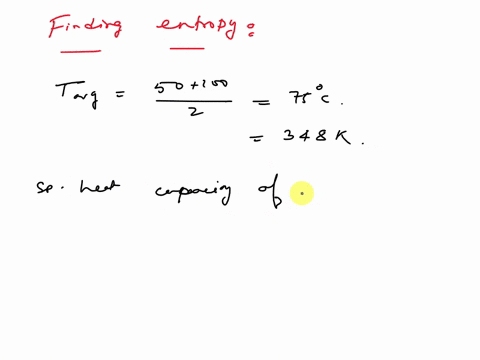 Finding entropy:
Tavg = 50 + 100 / 2 = 75°C.
= 348 K.
Sp. heat capacity of